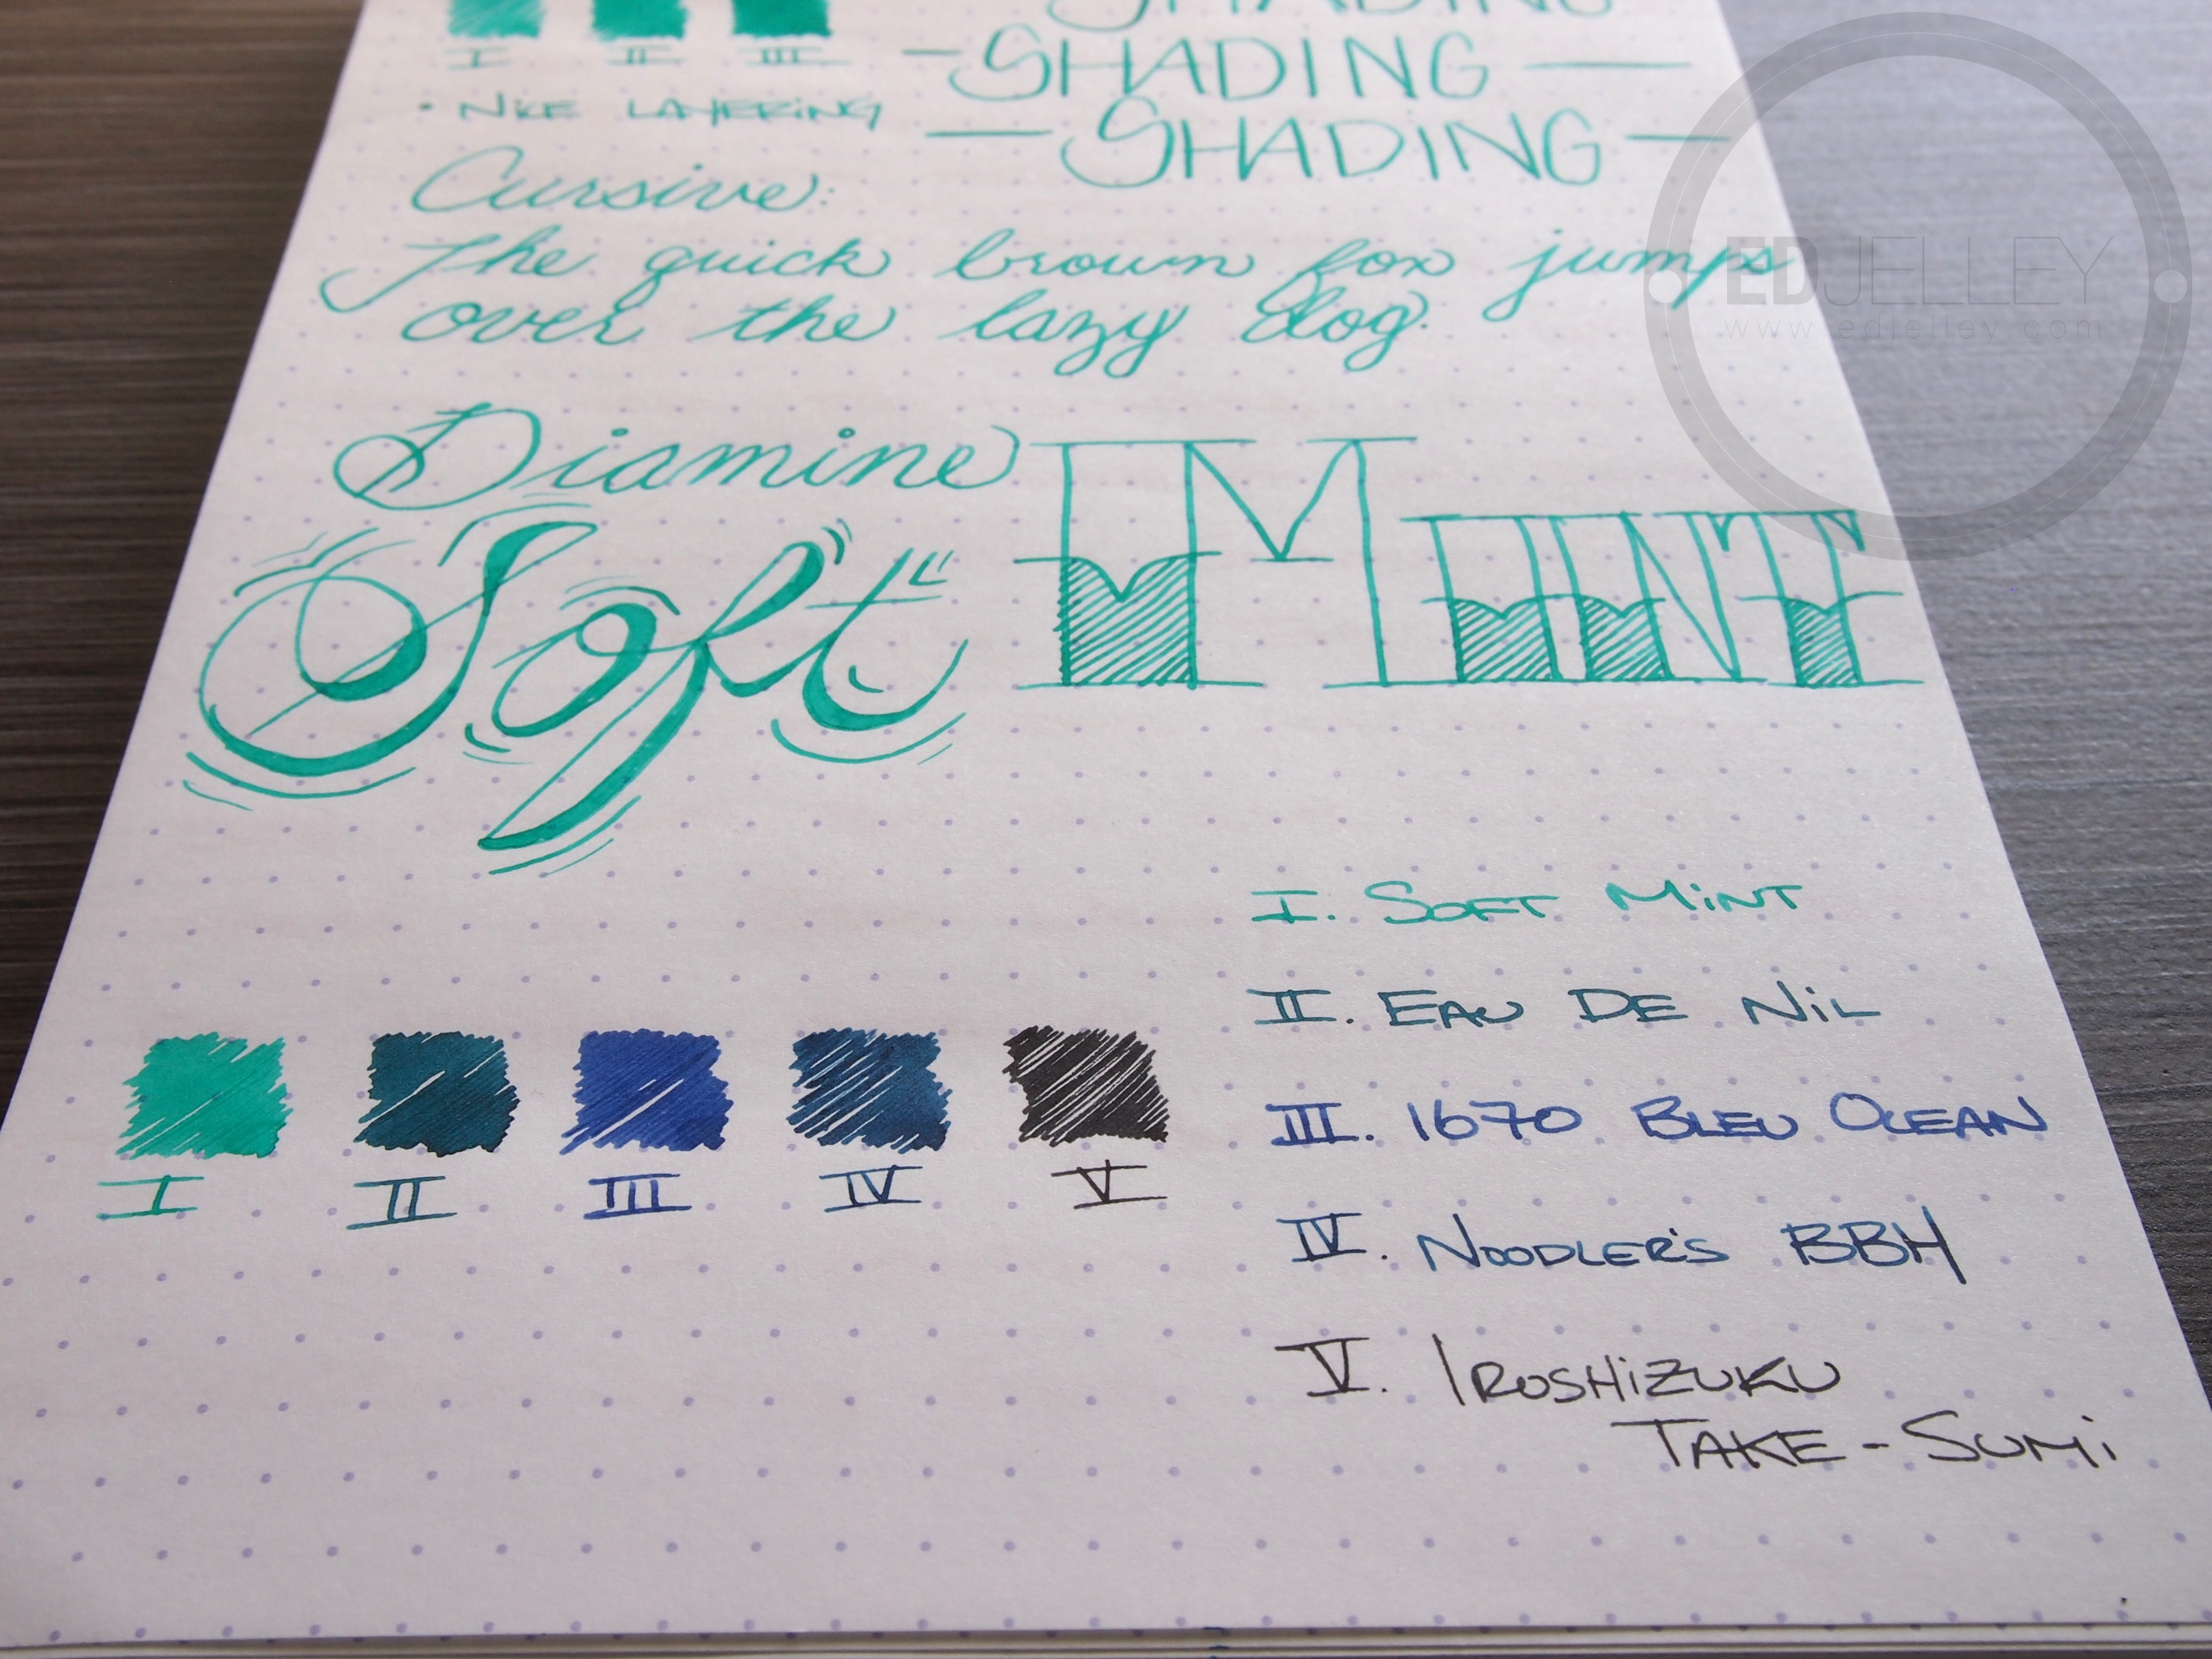 I II III
SHADING
- SHADING -
- SHADING -
• NICE LAYERING
Cursive:
The quick brown fox jumps
over the lazy dog.
Diamine
Soft MINT
I. SOFT MINT
II. EAU DE NIL
III. 1670 BLEU OCEAN
IV. NOODLER'S BBH
V. IROSHIZUKU
TAKE-SUMI
I II III IV V
EDJELLEY
www.edjelley.com